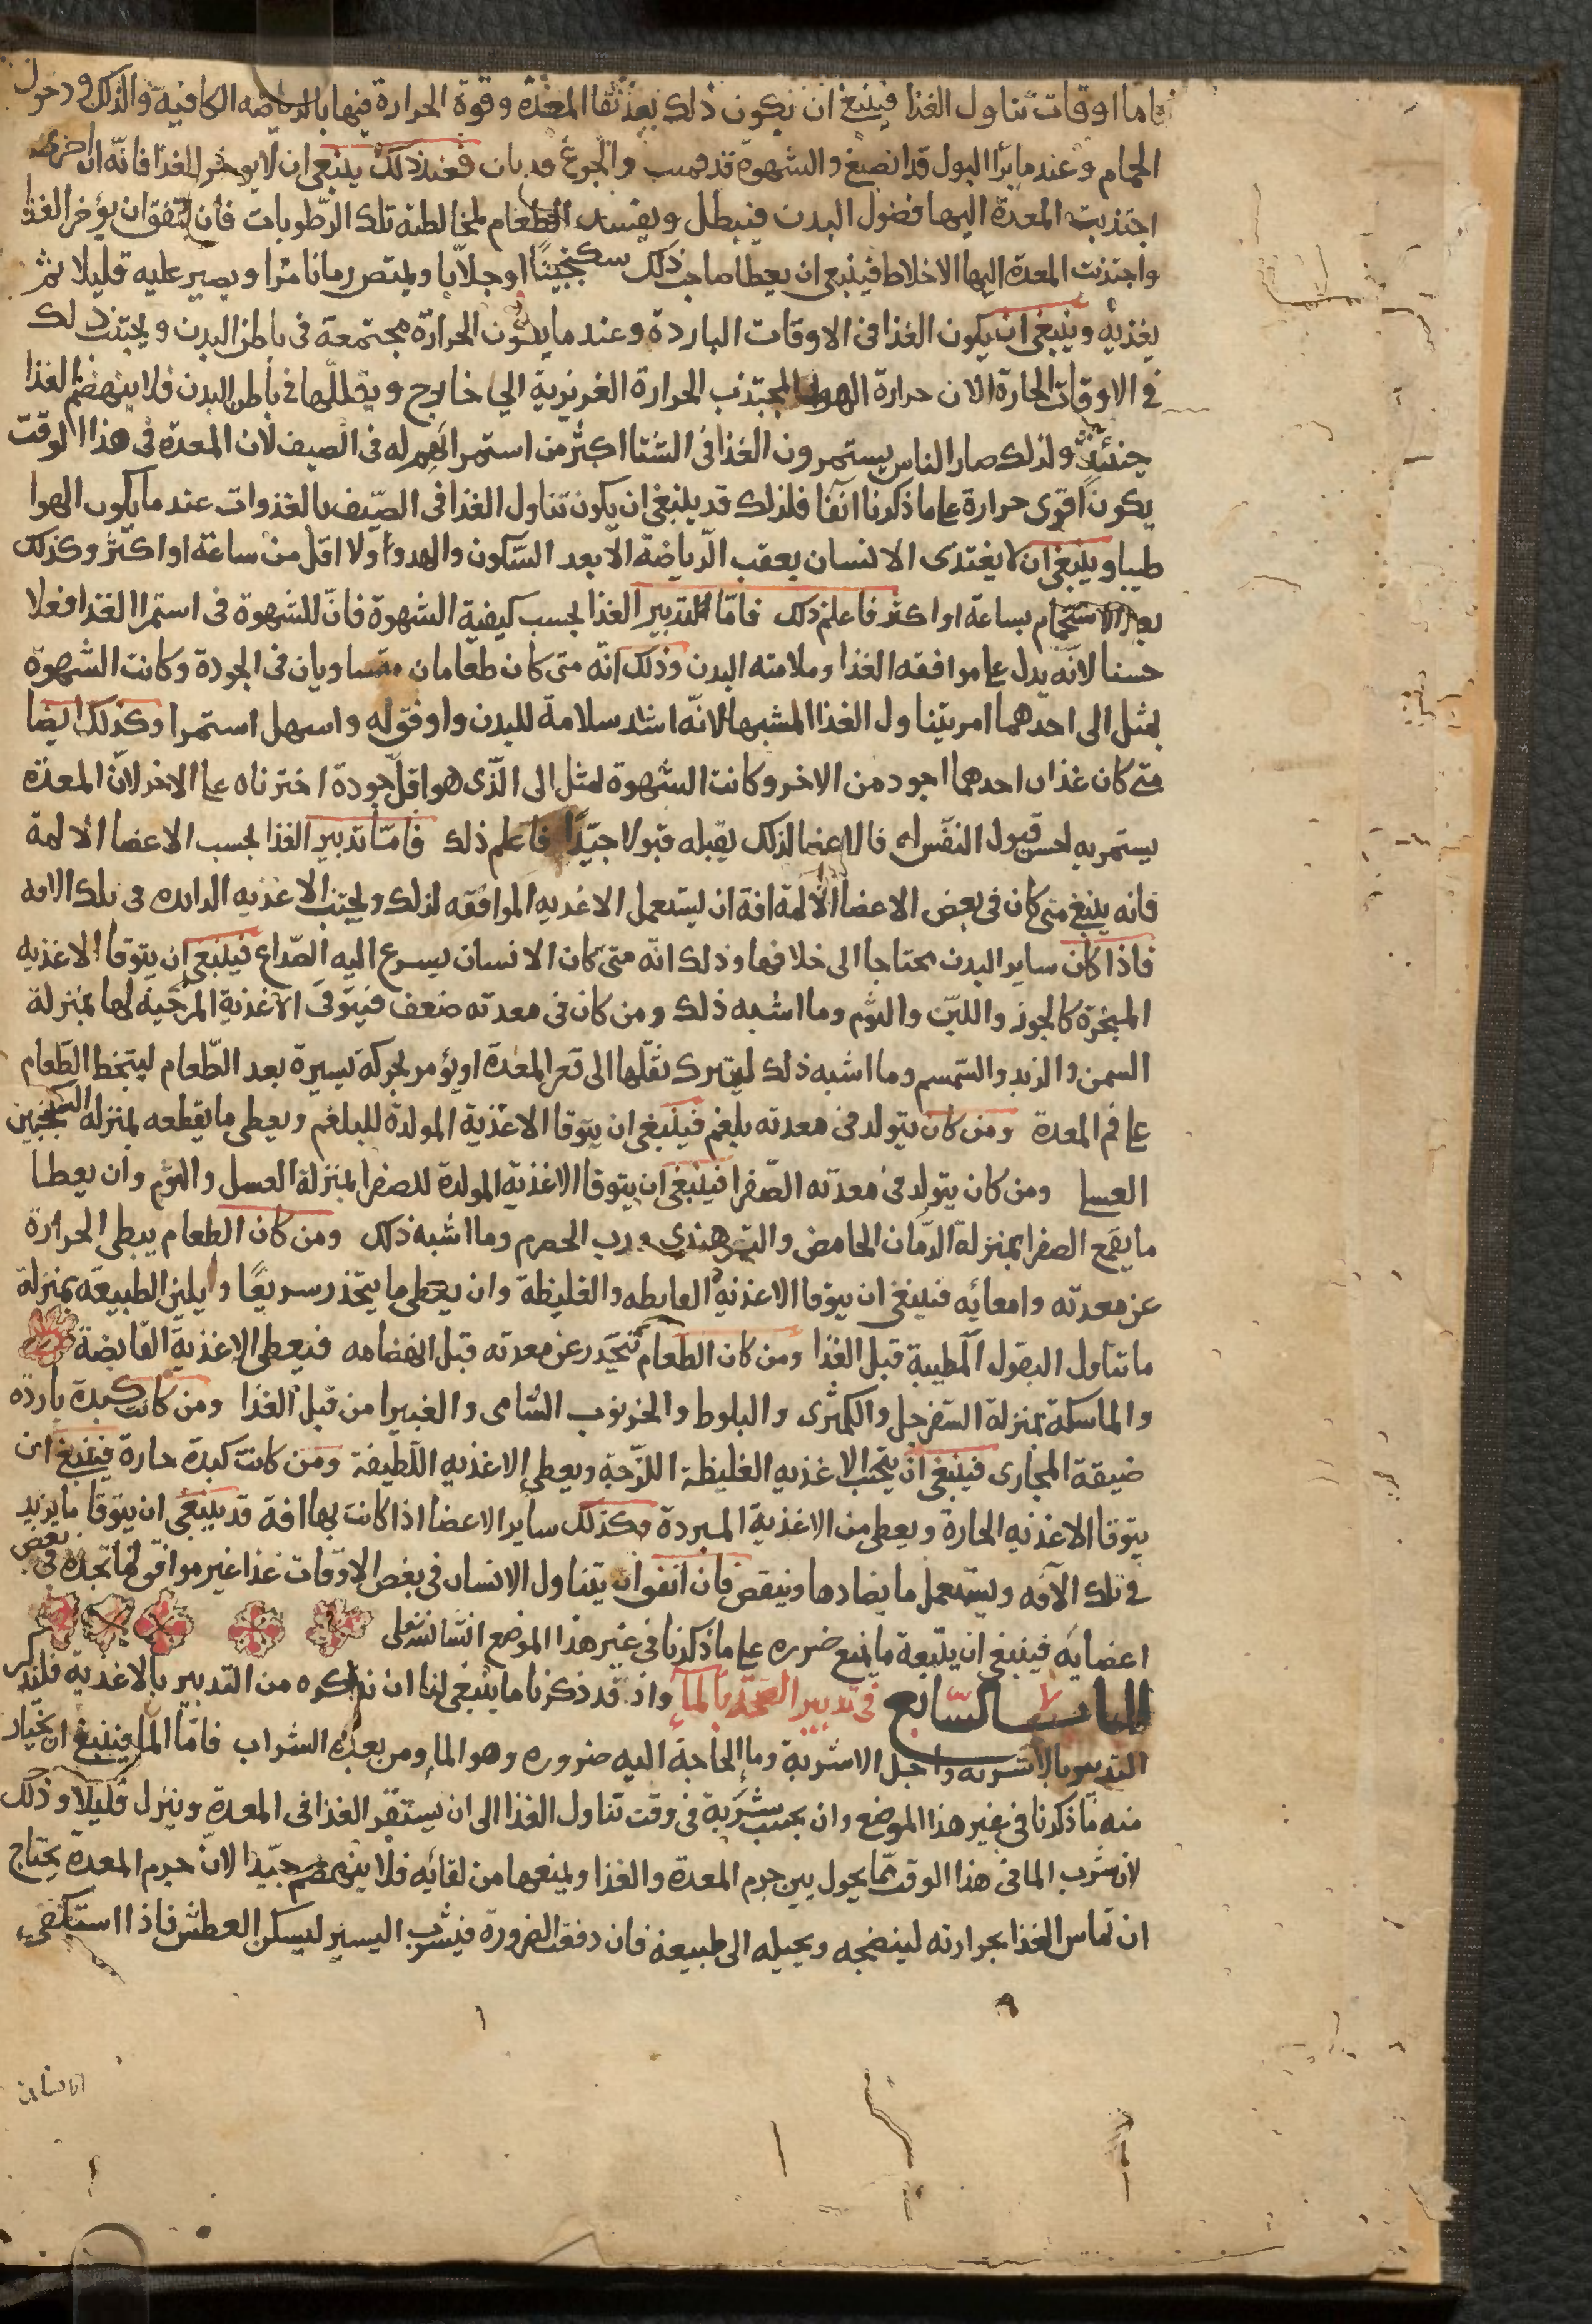 فاما اوقات تناول الغذا فينبغى ان يكون ذلك بعد نقا المعدة وقوة الحرارة فيها بالرياضه الكافية والدلك ودخول
الحمام وعند ما يرا البول قد انصبغ والشهوة قد والجوع قد بان فعند ذلك ينبغى ان لا يوخر الغذا فانه ان اخرى
اجتذبت المعدة اليها فضول البدن فيبطل ويفسد الطعام لمخالطته تلك الرطوبات فان اتفق ان يؤخر الغذا
واجتذبت المعدة اليها الاخلاط فينبغى ان يعطا صاحب ذلك سكنجبينًا او جلّابا ويمتص رمانا مُزا ويصبر عليه قليلا ثم
يغذيه وينبغى ان يكون الغذا فى الاوقات الباردة وعند ما يكون الحرارة مجتمعة فى باطن البدن ويجتنب ذلك
فى الاوقات الحارة لان حرارة الهوا يجتذب الحرارة الغريزية الى خارج ويقللها فى باطن البدن فلا ينهضم الغذا
حينئذٍ ولذلك صار الناس يستمرون الغذا فى الشتا اكثر من استمرائهم له فى الصيف لان المعدة فى هذا الوقت
يكون اقوى حرارة على ما ذكرنا انفا فلذلك قد ينبغى ان يكون تناول الغذا فى الصّيف بالغدوات عند ما يكون الهوا
طيبا وينبغى ان لا يغتذى الانسان بعقب الرّياضة الّا بعد السّكون والهدوا ولا اقل من ساعة او اكثر وكذلك
بعد الاستحمام بساعة او اكثر فاعلم ذلك فامّا التدبير الغذا بحسب كيفية الشهوة فانّ للشهوة فى استمرا الغذا فعلا
حسنا لانّه يدل على موافقه الغذا وملامته البدن وذلك انّه متى كان طعامان متساويان فى الجودة وكانت الشهوة
تميل الى احدهما امر بتناول الغذا المشبها لانّه اشد سلامة للبدن واوفق له واسهل استمرا وكذلك ايضا
متى كان غذاان احدهما اجود من الاخر وكانت الشهوة تميل الى الّذى هو اقل جودة اخترناه على الاخر لانّ المعدة
يستمريه لحسن قبول النفس له فالاعضا لذلك يقبله قبولا جيّدًا فاعلم ذلك فامّا تدبير الغذا بحسب الاعضا الالمة
فانه ينبغى متى كان فى بعض الاعضا الالمة افة ان يستعمل الاغذيه الموافقه لذلك ويجتنب الاغذيه الزايده فى تلك الافه
فاذا كان ساير البدن محتاجا الى خلافها وذلك انّه متى كان الانسان يسرع اليه الصّداع فينبغى ان يتوقا الاغذيه
المبخرة كالجوز واللبن والثوم وما اشبه ذلك ومن كان فى معدته ضعف فيتوقى الاغذية المرخية لها بمنزلة
السمن والزبد والسّمسم وما اشبه ذلك ليترك ثقلها الى قعر المعدة او يؤمر بحركة يسيرة بعد الطّعام لينحط الطّعام
على فم المعدة ومن كان يتولد فى معدته بلغم فينبغى ان يتوقا الاغذية المولدة للبلغم ويعطى ما يقطعه بمنزله السكنجبين
العسلى ومن كان يتولد فى معدته الصّفرا فينبغى ان يتوقا الاغذية المولدة للصفرا بمنزلة العسل والثوم وان يعطا
ما يقمع الصفرا بمنزلة الرّمان الحامض والتمر هندى ورب الحصرم وما اشبه ذلك ومن كان الطعام يبطى الحرارة
عن معدته وامعائه فينبغى ان يتوقا الاغذية القابضه والغليظة وان يعطى ما ينحدر سريعًا وايلين الطبيعة بمنزلة
ما تناول البقول المطيبة قبل الغذا ومن كان الطعام تنحدر عن معدته قبل انهضامه فيعطى الاغذية القابضة
والماسكة بمنزلة السّفرجل والكمثرى والبلوط والخرنوب الشامى والغبيرا من قبل الغذا ومن كانت كبدة باردة
ضيقة المجارى فينبغى ان يتجنب الاغذيه الغليظة اللزّجة ويعطى الاغذيه اللّطيفة ومن كانت كبدة حارة فينبغى ان
يتوقا الاغذيه الحارة ويعطى من الاغذية المبردة وكذلك ساير الاعضا اذا كانت بها افة قد ينبغى ان يتوقا ما يزيد
فى تلك الآفه ويستعمل ما يضادها وينقص فان اتفق ان يتناول الانسان فى بعض الاوقات غذا غير موافق لها تجده فى بعض
اعضايه فينبغى ان يتبعة ما يمنع ضرره على ما ذكرنا فى غير هذا الموضع انشا تعلى
الباب السّابع فى تدبير الصّحّة بالماإ واذ قد ذكرنا ما ينبغى لنا ان نذكره من التدبير بالاغذية فلنذكر
التدبير بالاشربه واجل الاشربة وما الحاجة اليه ضروره وهو الماء ومن بعده الشراب فامّا الما فينبغى ان يختار
منه مّا ذكرنا فى غير هذا الموضع وان يجنب شربة فى وقت تناول الغذا الى ان يستقر الغذا فى المعدة وينزل قليلا وذلك
لان شرب الما فى هذا الوقت ممّا يحول بين جرم المعدة والغذا ويمنعها من لقائه فلا ينهضم جيّدا لانّ جرم المعدة يحتاج
ان تماس الغذا بحرارته لينضجه ويحيله الى طبيعة فان دفقت الضرورة فيشرب اليسير ليسكن العطش فاذا استكفى